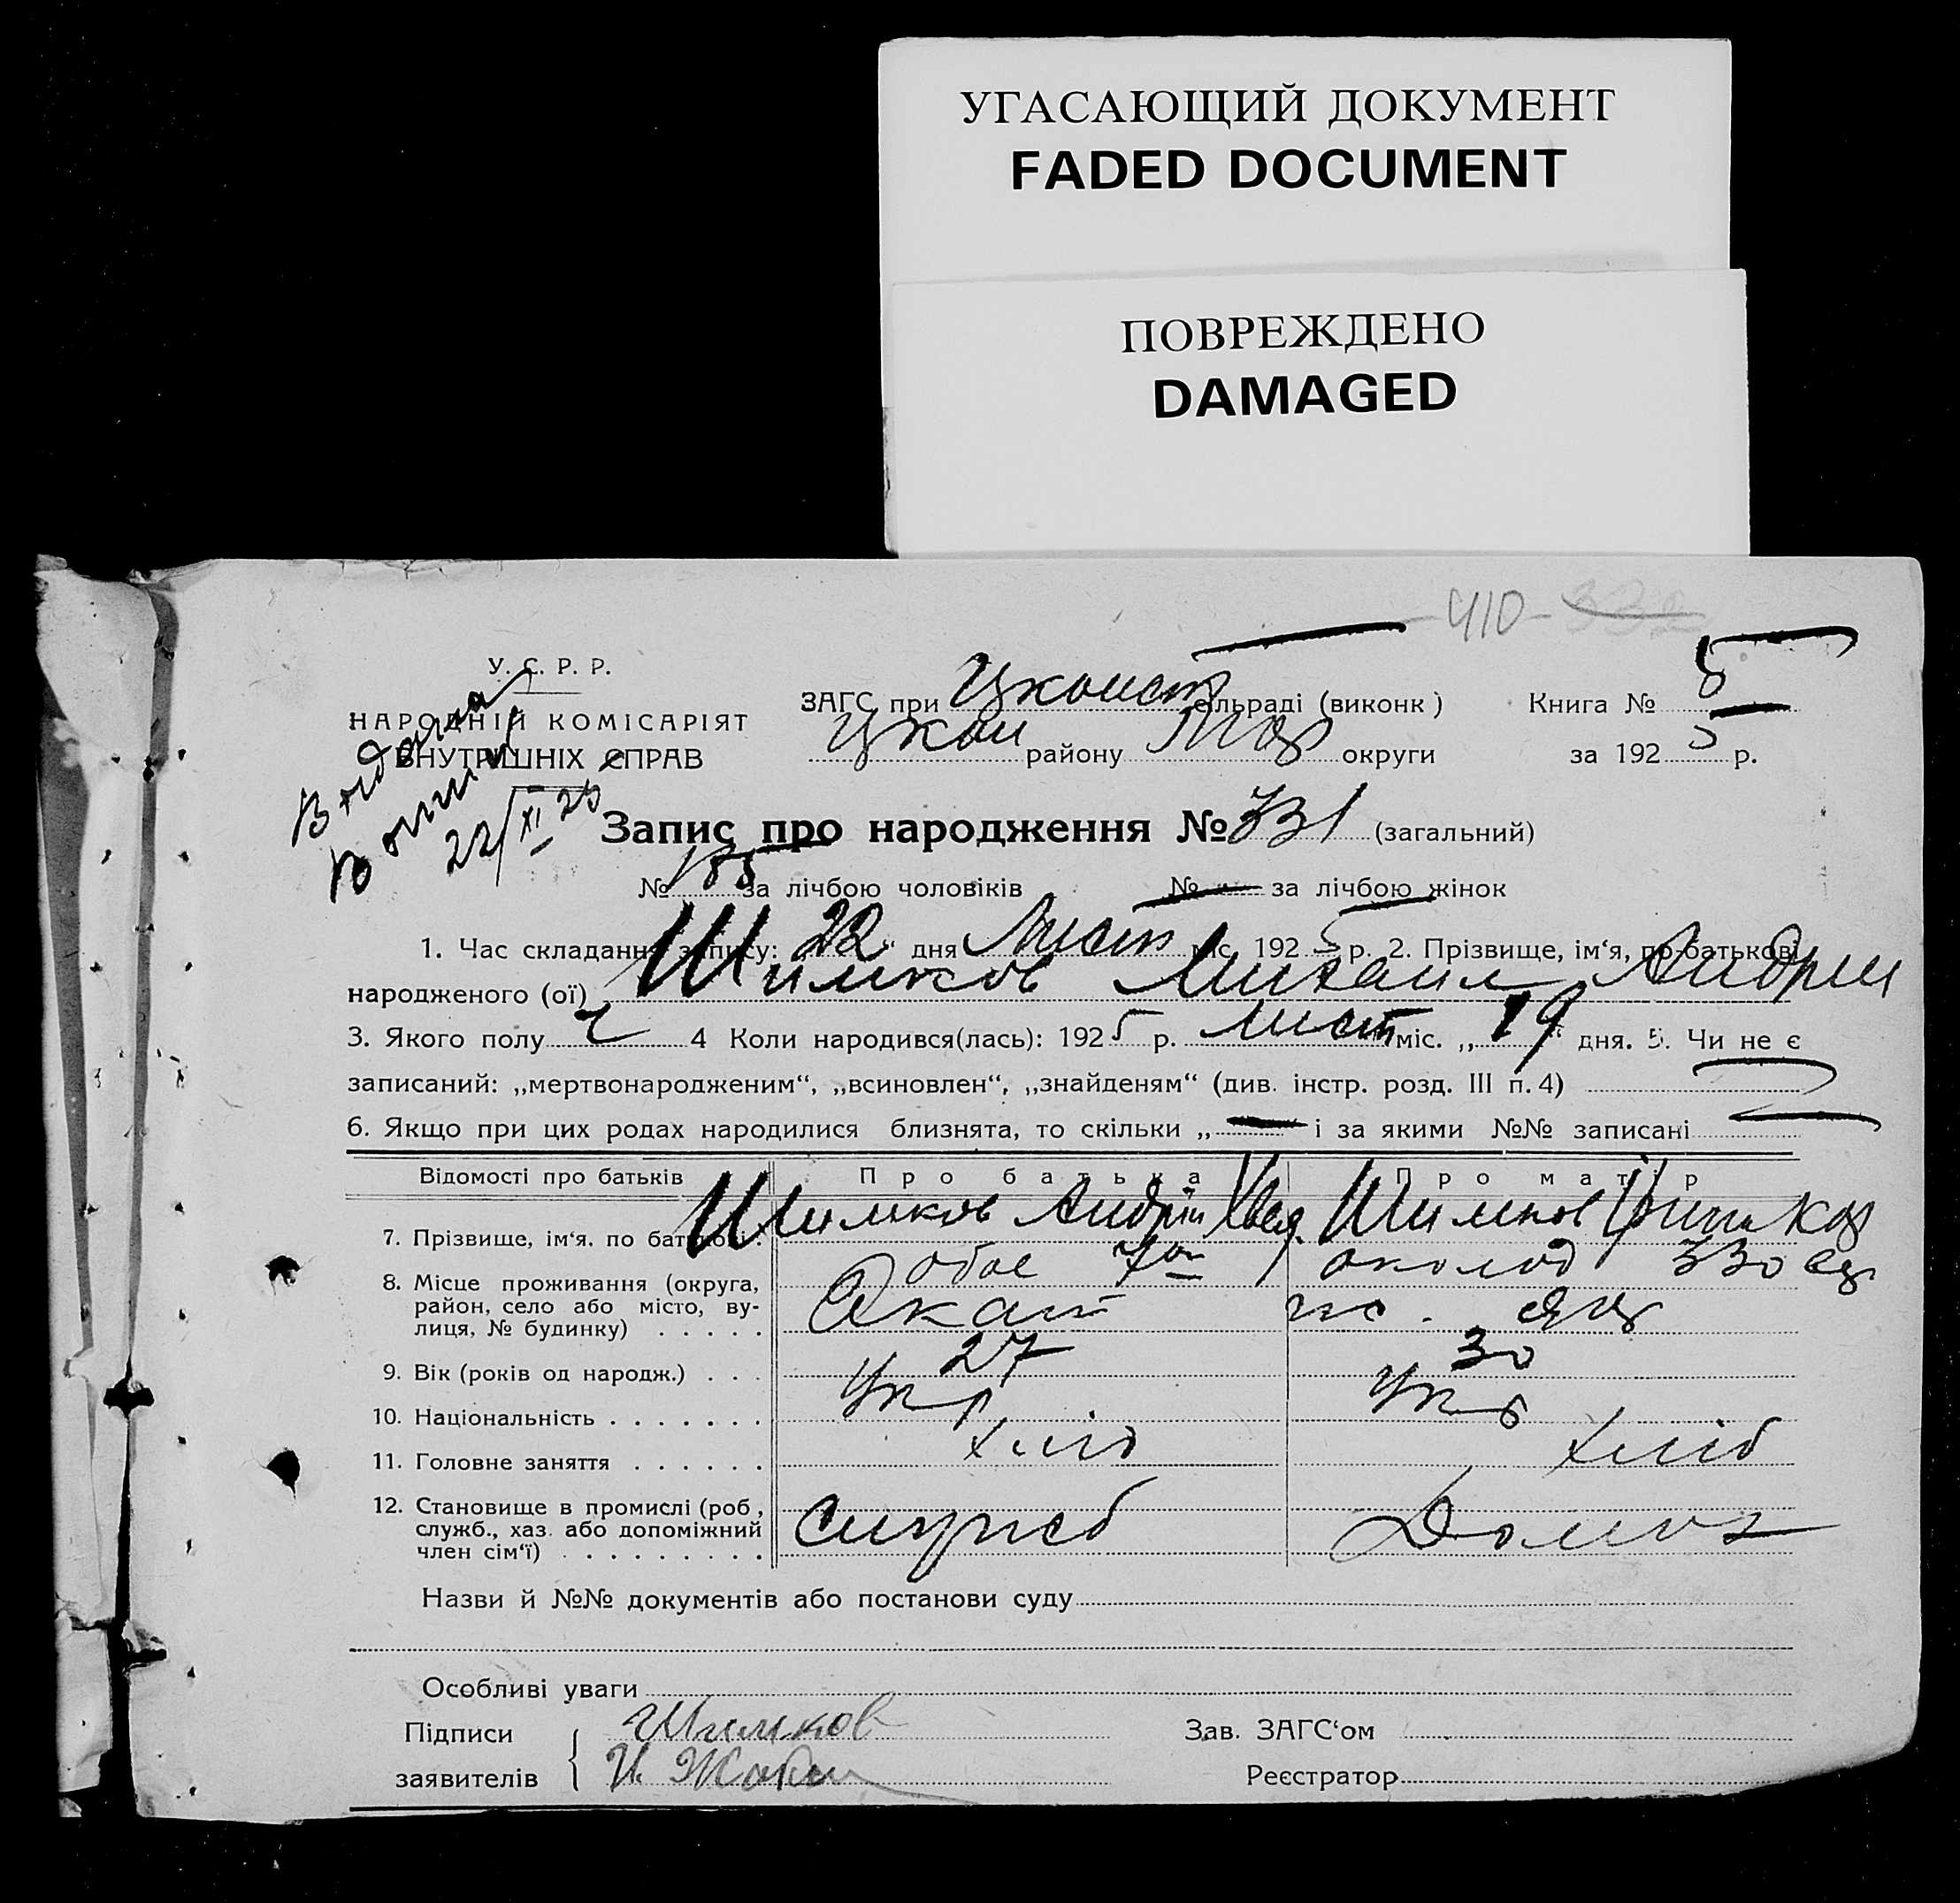 УГАСАЮЩИЙ ДОКУМЕНТ
FADED DOCUMENT
ПОВРЕЖДЕНО
DAMAGED
410 - 332
У. С. Р. Р.
НАРОДНІЙ КОМІСАРІЯТ
ВНУТРІШНІХ СПРАВ
22/XI 25
ЗАГС при сільраді (виконк) Книга № 5
району округи за 1925 р.
Запис про народження № 331 (загальний)
№ 188 за лічбою чоловіків № — за лічбою жінок
1. Час складання запису: 22 " дня Лист міс. 1925 р. 2. Прізвище, ім‘я, по-батькові
народженого (ої) Шимков Михаил Андрии
3. Якого полу ч 4 Коли народився(лась): 1925 р. лист міс. „ 19 “ дня. 5. Чи не є
записаний: „мертвонародженим“, „всиновлен“, „знайденям“ (див. інстр. розд. III п. 4)
6. Якщо при цих родах народилися близнята, то скільки „ — і за якими №№ записані —
Відомості про батьків Про батька Про матір
7. Прізвище, ім‘я. по батькові . Шимков Андрій Шимков
8. Місце проживання (округа, район, село або місто, вулиця, № будинку) . . . . . обое 7ой околод 330
9. Вік (років од народж.) . . . 27 30
10. Національність . . . . . . . Укр Укр
11. Головне заняття . . . . . . хліб хліб
12. Становище в промислі (роб., служб., хаз. або допоміжний член сім‘ї) . . . . . . . . .
Назви й №№ документів або постанови суду
Особливі уваги
Підписи Шимков Зав. ЗАГС‘ом
заявителів Реєстратор